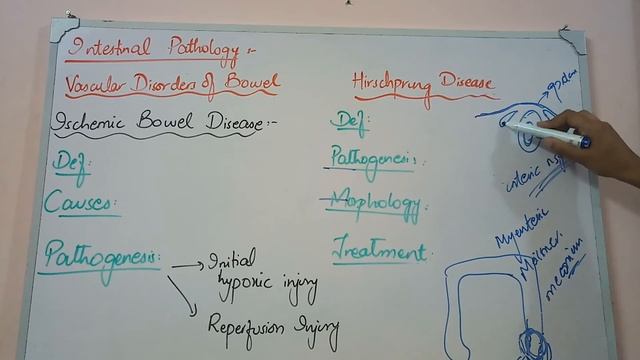 Intestinal Pathology :-
Vascular Disorders of Bowel
Ischemic Bowel Disease :-
Def:
Causes:
Pathogenesis:
Initial
hypoxic injury
Reperfusion Injury
Hirschprung Disease
Def:
Pathogenesis:
Mophology:
Treatment:
enteric
Myenteric
Meissner.
meconium